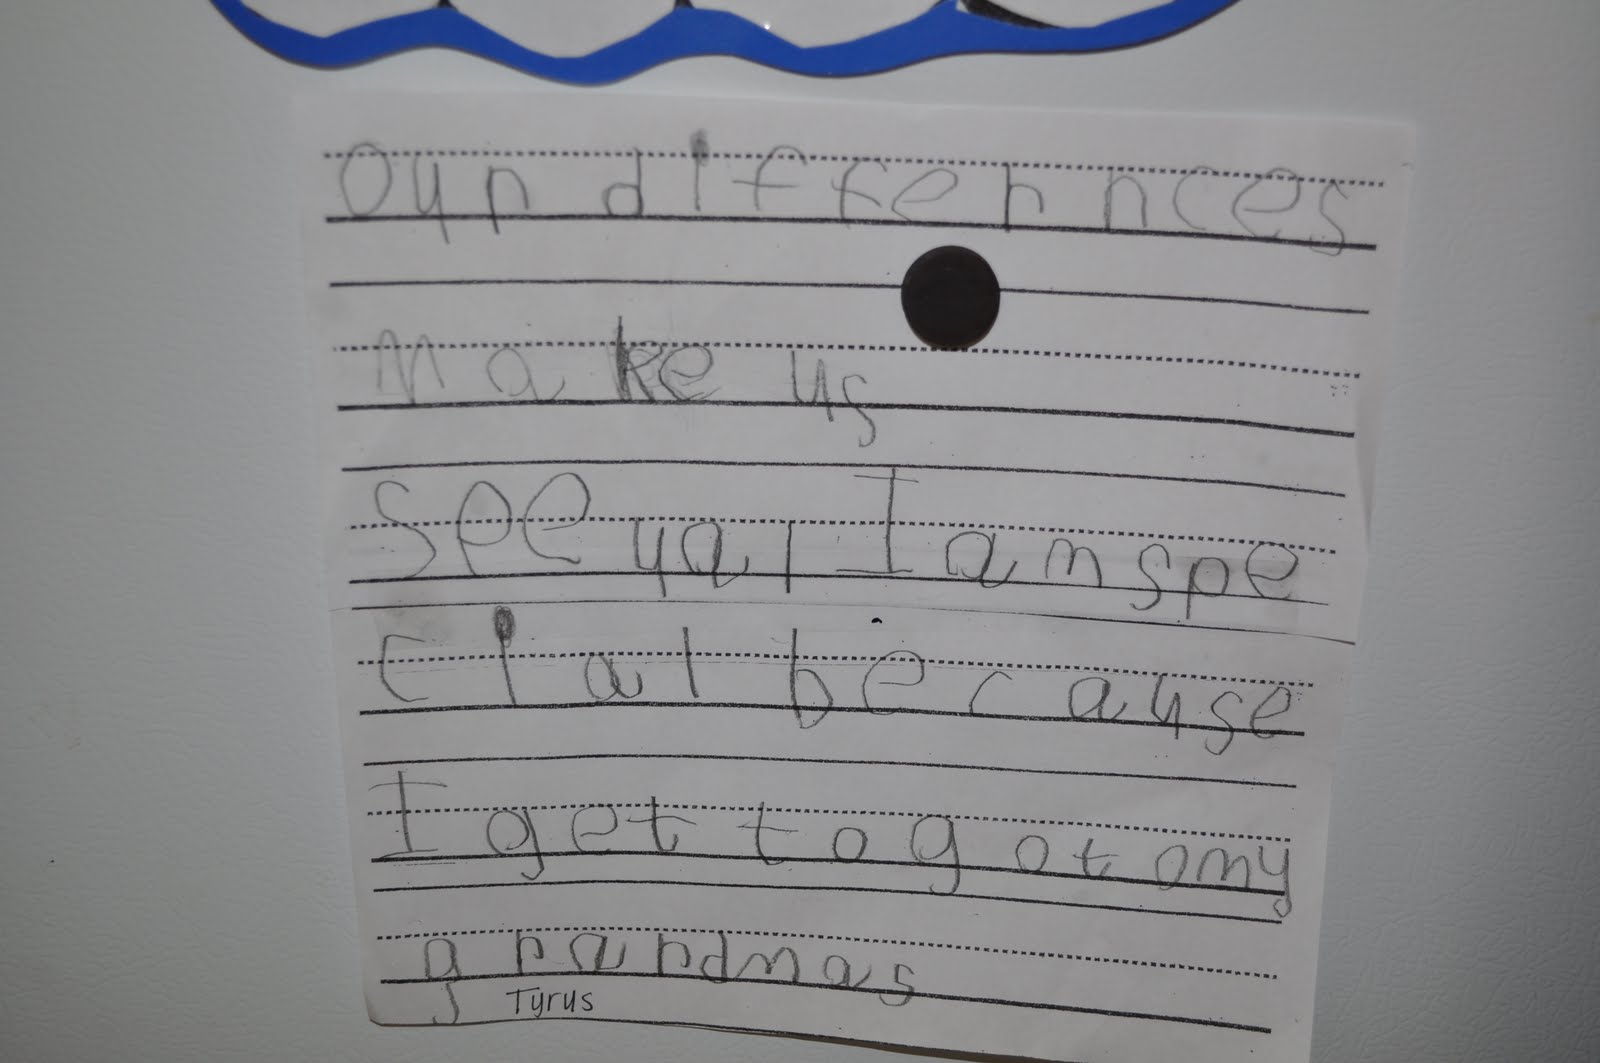 Our differnces
Make us
Speeyal I am spe
cial because
I get to go to my
grandmas
Tyrus